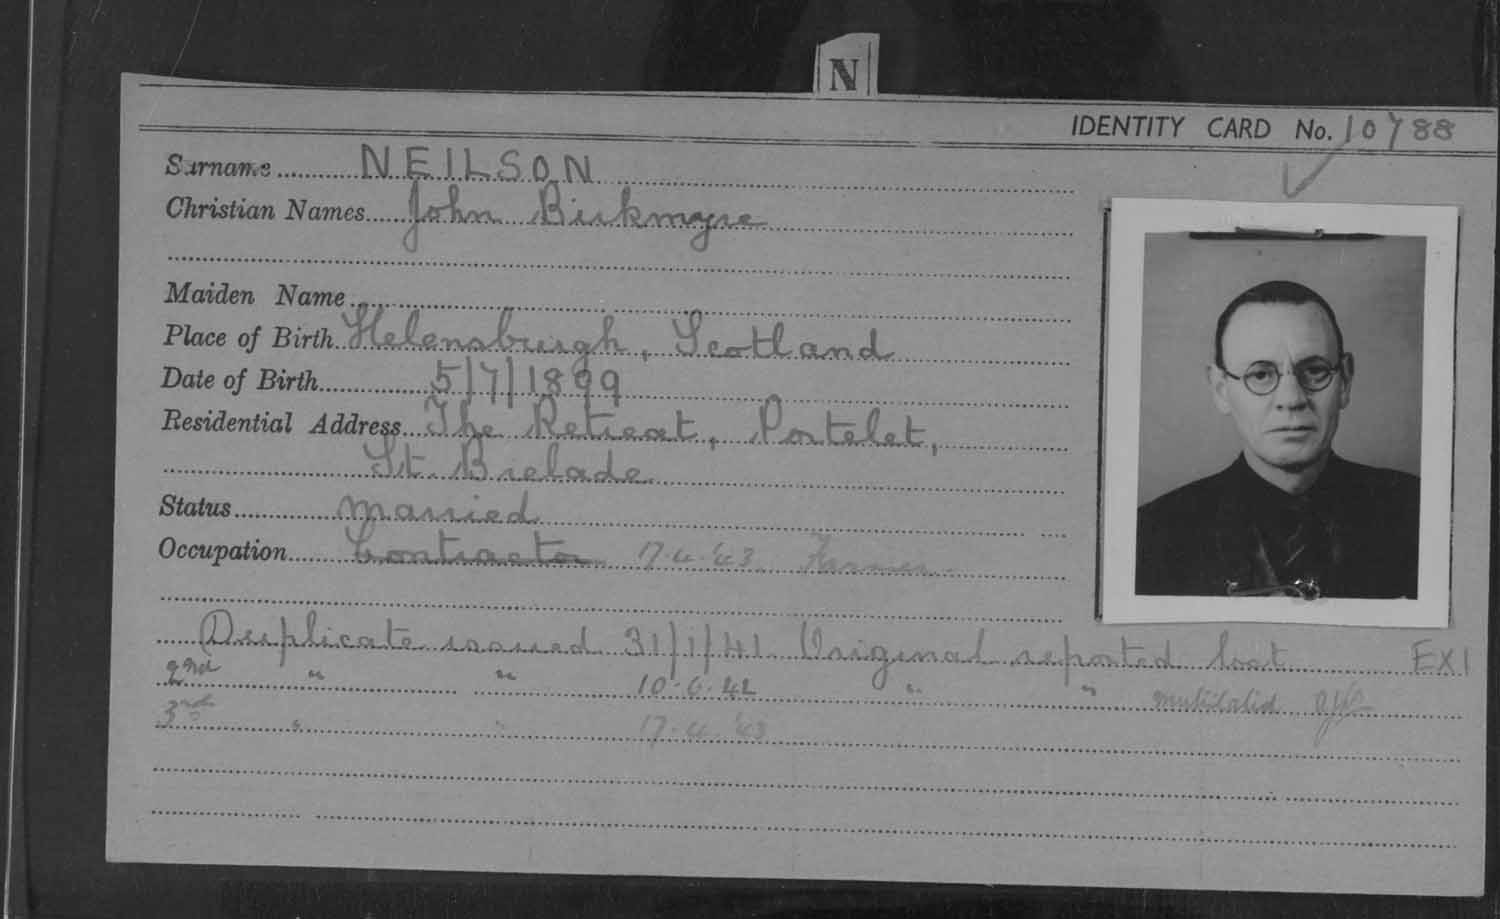 N
IDENTITY CARD No. 10788
Surname NEILSON
Christian Names John Birkmyre
Maiden Name
Place of Birth Helensburgh, Scotland
Date of Birth 5/7/1899
Residential Address The Retreat, Portelet,
St. Brelade
Status Married
Occupation Contractor 17.4.'43. Farmer.
Duplicate issued 31/1/41 Original reported lost EX1
2nd " " 10.6.42 " " mutilated
3rd " " 17.4.'43